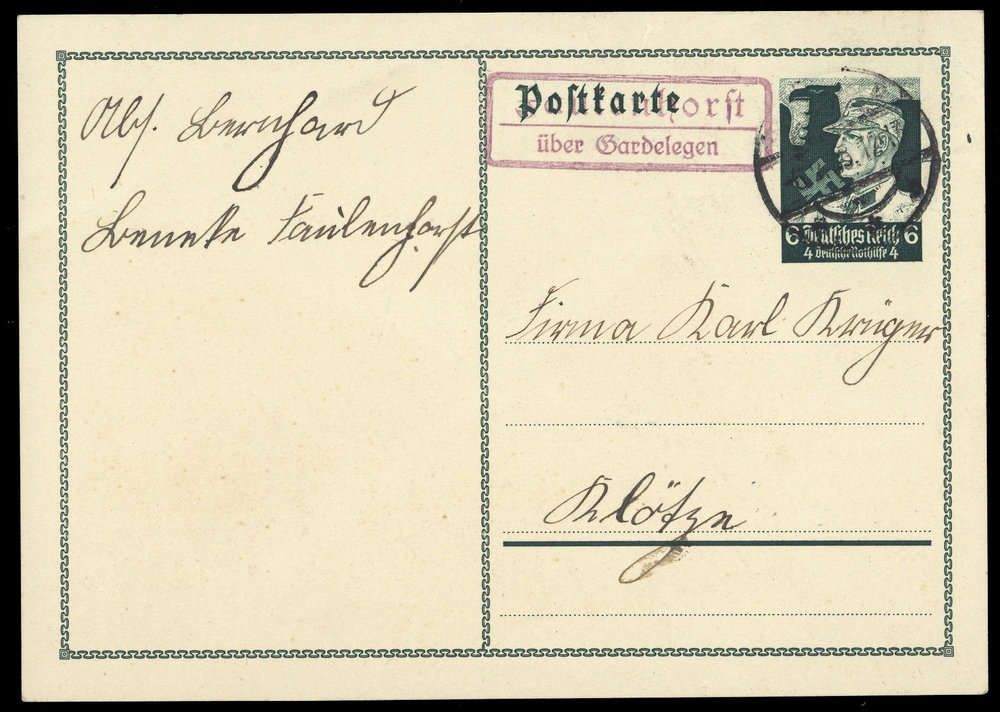 Abs. Bernhard
Beneke Faulenhorst
Postkarte
horst
über Gardelegen
6 Deutsches Reich 6
4 Deutsche Nothilfe 4
Firma Karl Krüger
Klötze